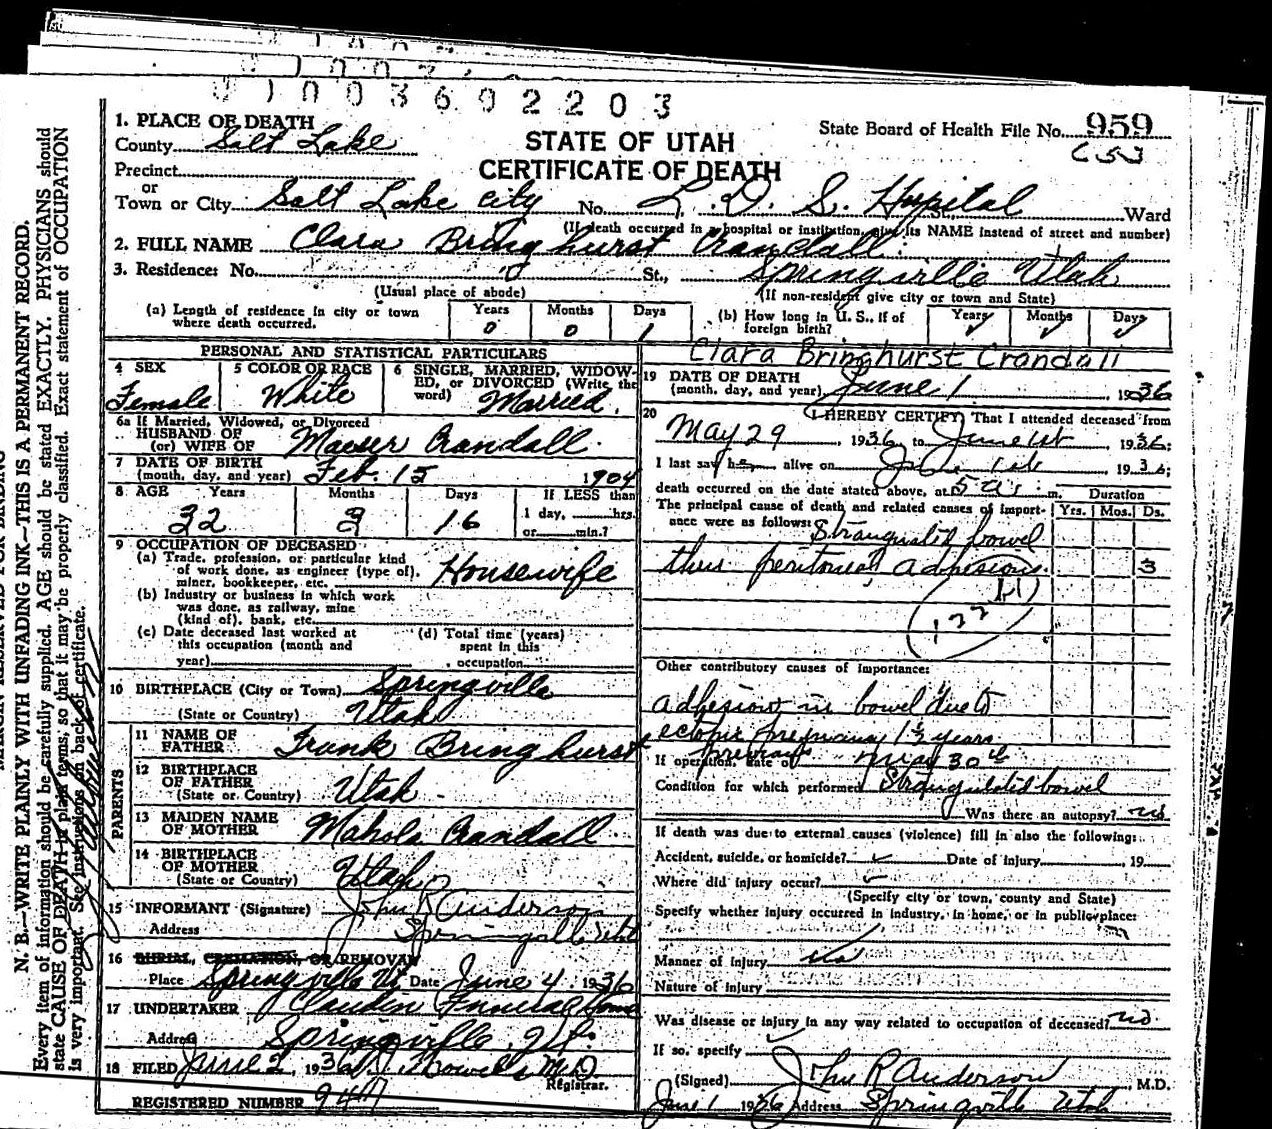 1003692203
1. PLACE OF DEATH
County Salt Lake
STATE OF UTAH
CERTIFICATE OF DEATH
State Board of Health File No. 959
Precinct
or
Town or City Salt Lake City No. L. D. S. Hospital St., Ward
(If death occurred in a hospital or institution, give its NAME instead of street and number)
2. FULL NAME Clara Bringhurst Crandall
3. Residence: No. St., Springville Utah
(Usual place of abode) (If non-resident give city or town and State)
(a) Length of residence in city or town where death occurred. Years 0 Months 0 Days 1
(b) How long in U. S., if of foreign birth? Years ✓ Months ✓ Days ✓
PERSONAL AND STATISTICAL PARTICULARS
4 SEX Female
5 COLOR OR RACE White
6 SINGLE, MARRIED, WIDOWED, or DIVORCED (Write the word) Married.
6a If Married, Widowed, or Divorced
HUSBAND OF
(or) WIFE OF Maeser Crandall
7 DATE OF BIRTH
(month, day, and year) Feb. 15 1904
8 AGE Years 32 Months 3 Days 16 If LESS than
1 day, hrs.
or min.?
9 OCCUPATION OF DECEASED
(a) Trade, profession, or particular kind
of work done, as engineer (type of),
miner, bookkeeper, etc. Housewife
(b) Industry or business in which work
was done, as railway, mine
(kind of), bank, etc.
(c) Date deceased last worked at
this occupation (month and
year)
(d) Total time (years)
spent in this
occupation
10 BIRTHPLACE (City or Town) Springville
(State or Country) Utah
PARENTS
11 NAME OF
FATHER Frank Bringhurst
12 BIRTHPLACE
OF FATHER
(State or Country) Utah
13 MAIDEN NAME
OF MOTHER Mahola Crandall
14 BIRTHPLACE
OF MOTHER
(State or Country) Utah
15 INFORMANT (Signature) John R Anderson
Address Springville Utah
16 BURIAL, CREMATION, OR REMOVAL
Place Springville Ut Date June 4 1936
17 UNDERTAKER Funeral Home
Address Springville, Ut.
18 FILED June 2, 1936 M.D.
Registrar.
REGISTERED NUMBER 947
Clara Bringhurst Crandall
19 DATE OF DEATH
(month, day, and year) June 1, 1936
20 I HEREBY CERTIFY, That I attended deceased from
May 29, 1936, to June 1st 1936;
I last saw her alive on 1936;
death occurred on the date stated above, at 5 a. m.
The principal cause of death and related causes of importance were as follows: Duration Yrs. Mos. Ds.
Strangulated bowel
thru peritoneal adhesions 3
122
Other contributory causes of importance:
adhesions in bowel due to
ectopic pregnancy 1½ years
previous
If operation, date of May 30th
Condition for which performed Strangulated bowel
Was there an autopsy? no
If death was due to external causes (violence) fill in also the following:
Accident, suicide, or homicide? ✓ Date of injury, 19
Where did injury occur? ✓
(Specify city or town, county and State)
Specify whether injury occurred in industry, in home, or in public place:
Manner of injury
Nature of injury
Was disease or injury in any way related to occupation of deceased? no
If so, specify
(Signed) John R Anderson M.D.
June 1 1936 Address Springville Utah
N. B.—WRITE PLAINLY WITH UNFADING INK—THIS IS A PERMANENT RECORD.
Every item of information should be carefully supplied. AGE should be stated EXACTLY. PHYSICIANS should
state CAUSE OF DEATH in plain terms, so that it may be properly classified. Exact statement of OCCUPATION
is very important. See instructions on back of certificate.